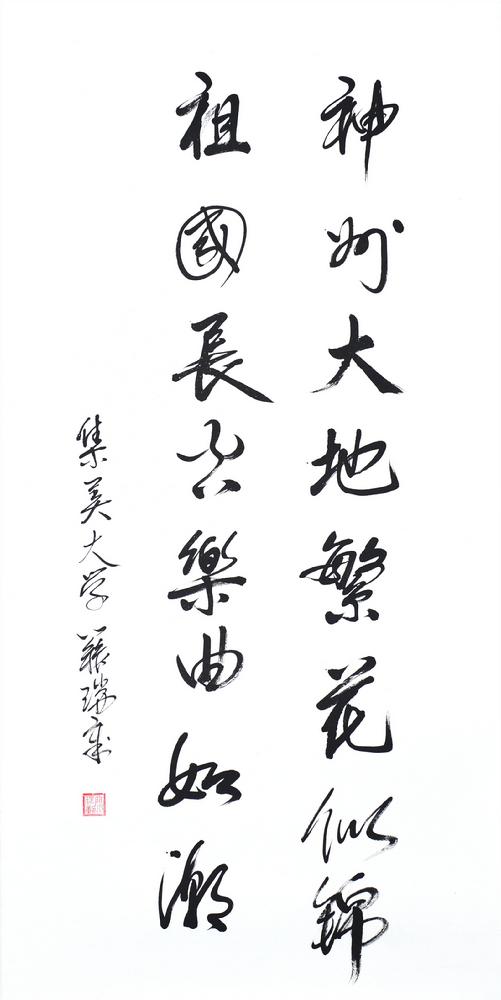 神州大地繁花似錦
祖國長空樂曲如潮
集美大学